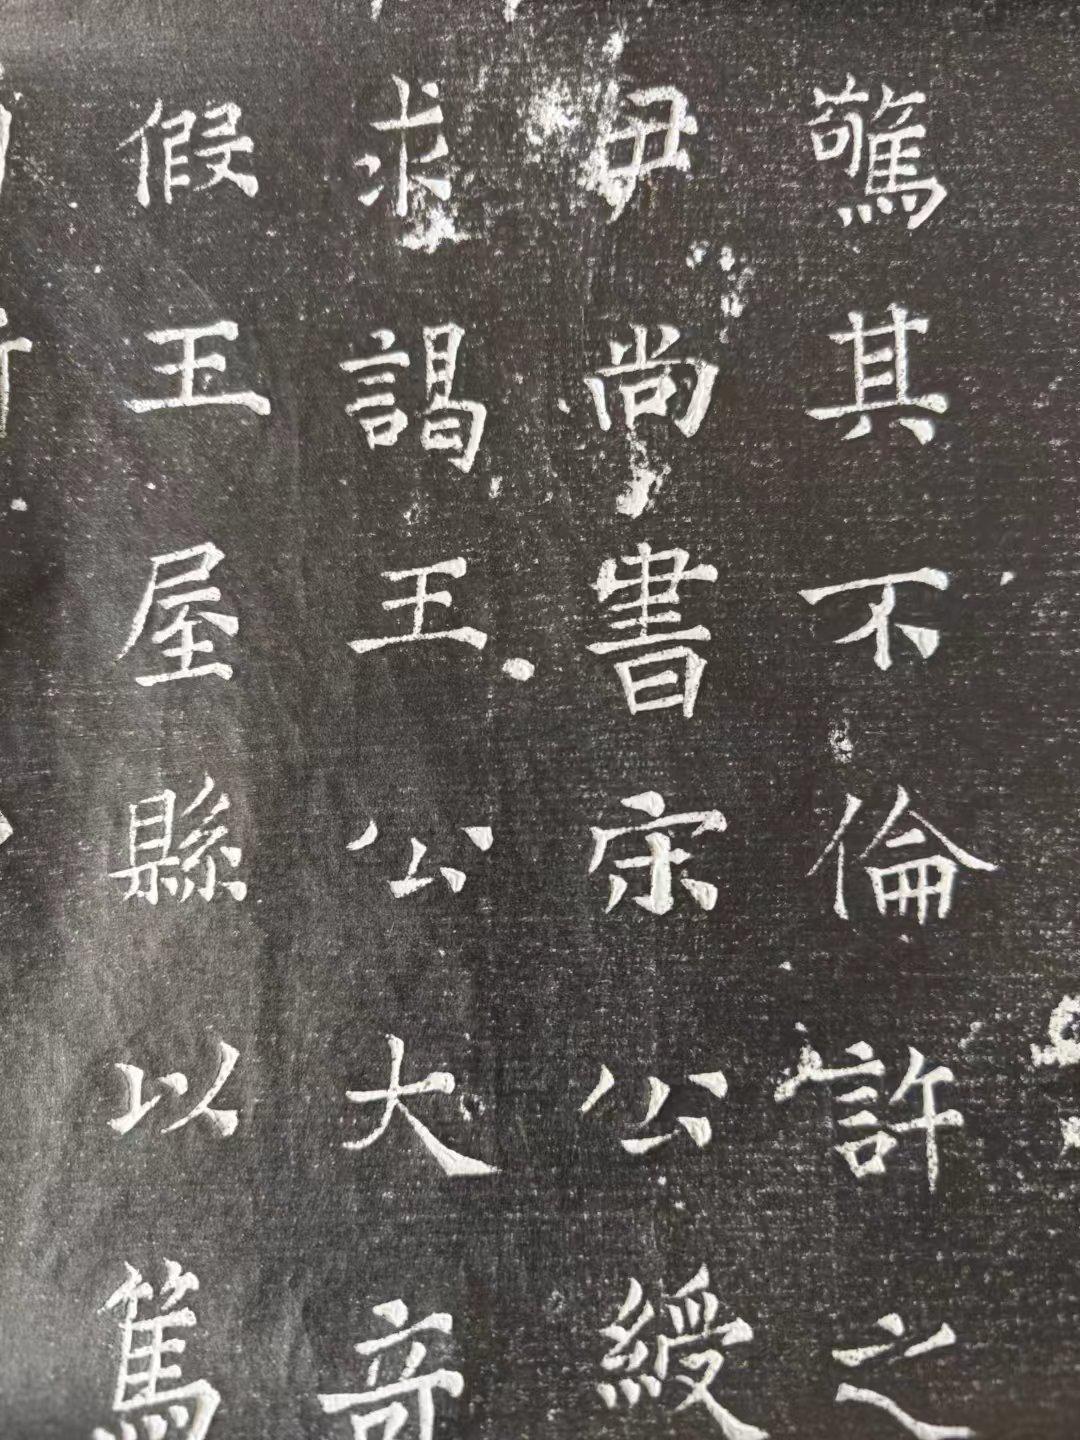 驚其不倫許之
尹尚書宋公綬
求謁王公大奇
假王屋縣以篤